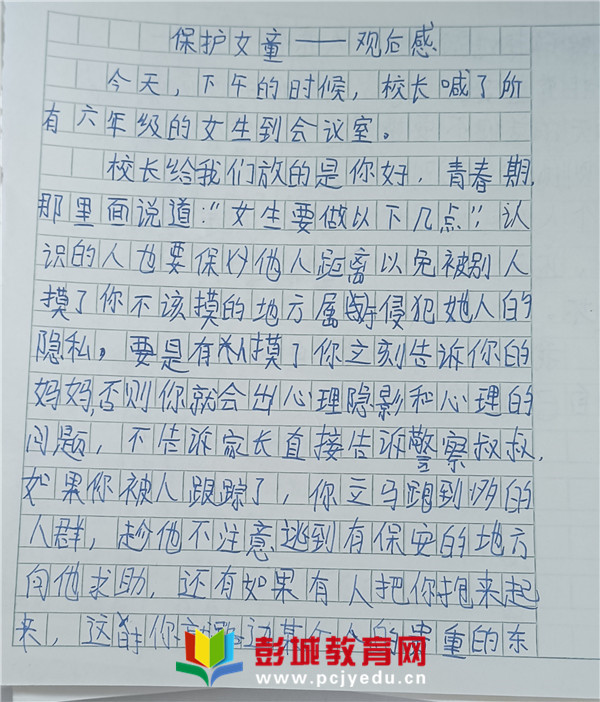 保护女童——观后感
今天，下午的时候，校长喊了所
有六年级的女生到会议室。
校长给我们放的是你好，青春期，
那里面说道：“女生要做以下几点”；认
识的人也要保他人距离以免被别人
摸了你不该摸的地方属于侵犯她人的
隐私。要是有人摸了你立刻告诉你的
妈妈，否则你就会出心理隐影和心理的
问题，不告诉家长直接告诉警察叔叔，
如果你被人跟踪了，你立马跑到多的
人群，趁他不注意逃到有保安的地方
向他求助，还有如果有人把你抱来起
来，这时你边某个人的贵重的东
彭城教育网
www.pcjyedu.cn